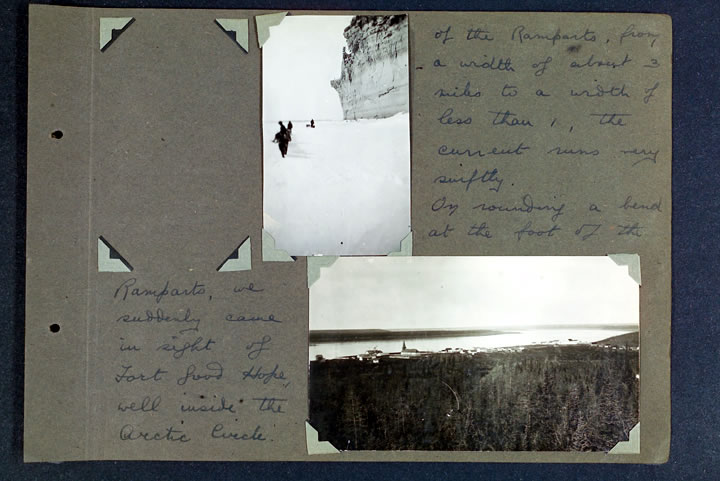 of the Ramparts, from
a width of about 3
miles to a width of
less than 1, the
current runs very
swiftly.
On rounding a bend
at the foot of the
Ramparts, we
suddenly came
in sight of
Fort Good Hope,
well inside the
Arctic Circle.